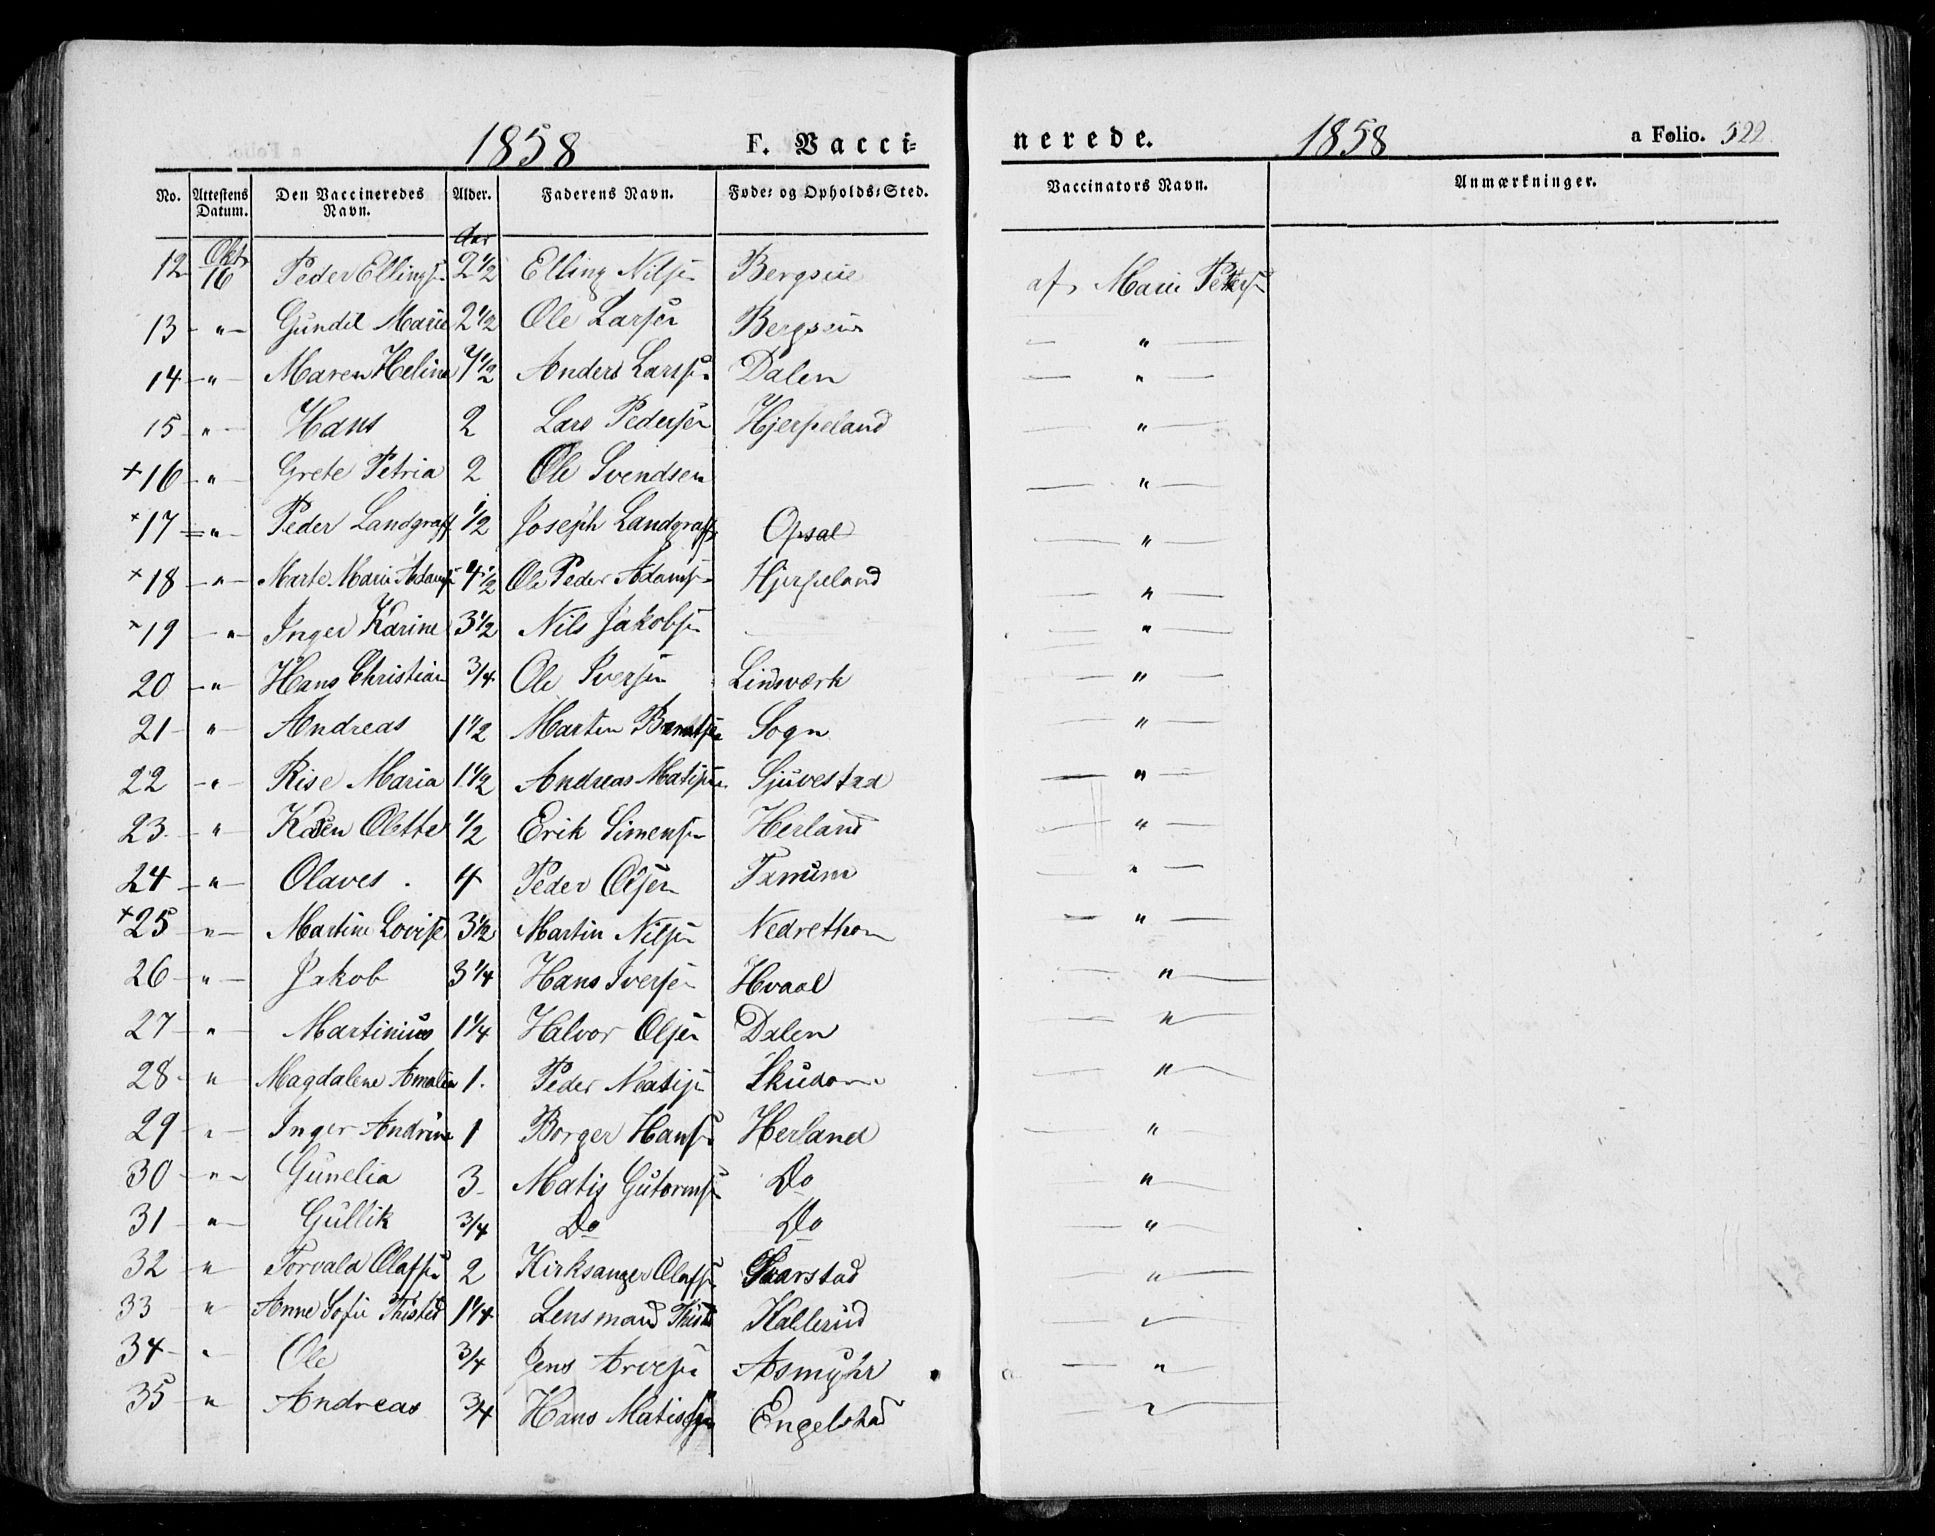 1858 F. Vacci= nerede. 1858 a Folio. 522
No. Attestens Datum. Den Vaccineredes Navn. Alder. Faderens Navn. Føde= og Opholds=Sted. Vaccinators Navn. Anmærkninger.
Aar
12 Oktr 16 Peder Ellings. 2 1/2 Elling Nilsen Bergseie af Marie Peters
13 - " - Gundil Marie 2 1/2 Ole Larsen Bergseie - " -
14 - " - Maren Heline 7 1/2 Anders Larsen Dalen - " -
15 - " - Hans 2 Lars Pedersen Hjerpeland - " -
+ 16 - " - Grete Petria 2 Ole Svendsen - " -
+ 17 = " - Peder Landgraff 1/2 Joseph Landgraff Opsal - " -
+ 18 - " - Marte Marie Adams. 4 1/2 Ole Peder Adams. Hjerpeland - " -
19 - " - Inger Karine 3 1/2 Nils Jakobsen - " -
20 - " - Hans Christian 3/4 Ole Iversen Lindsværk - " -
21 - " Andreas 1 1/2 Martin Berntsen Sogn - " -
22 - " - Rise Maria 1 1/2 Andreas Matisen Sjuvestad - " -
23 - " Karen Olette 1/2 Erik Simensen Herland - " -
24 - " - Olaves 4 Peder Olsen Farum - " -
+ 25 - " - Martine Lovise 3 1/2 Martin Nilsen Nedrethom - " -
26 - " - Jakob 3 1/4 Hans Iversen Hvaal - " -
27 - " - Martinius 1 1/4 Halvor Olsen Dalen - " -
28 - " Magdalene Amalia 1. Peder - " -
29 - " - Inger Andrine 1 Borger Hansen Herland - " -
30 - " - Gunelia 3 Matis Gutormsen Do - " -
31 - " - Gullik 3/4 Do Do - " -
32 - " Torvald Olafsen 2 Kirksanger Olafsen Svarstad - " -
33 " Anne Sofie Thisted 1 1/4 Lensmand Thisted Hallerud - " -
34 - " Ole 3/4 Jens Arvesen Asmyhr - " -
35 " Andreas 3/4 Hans Matissen Engelstad - " -